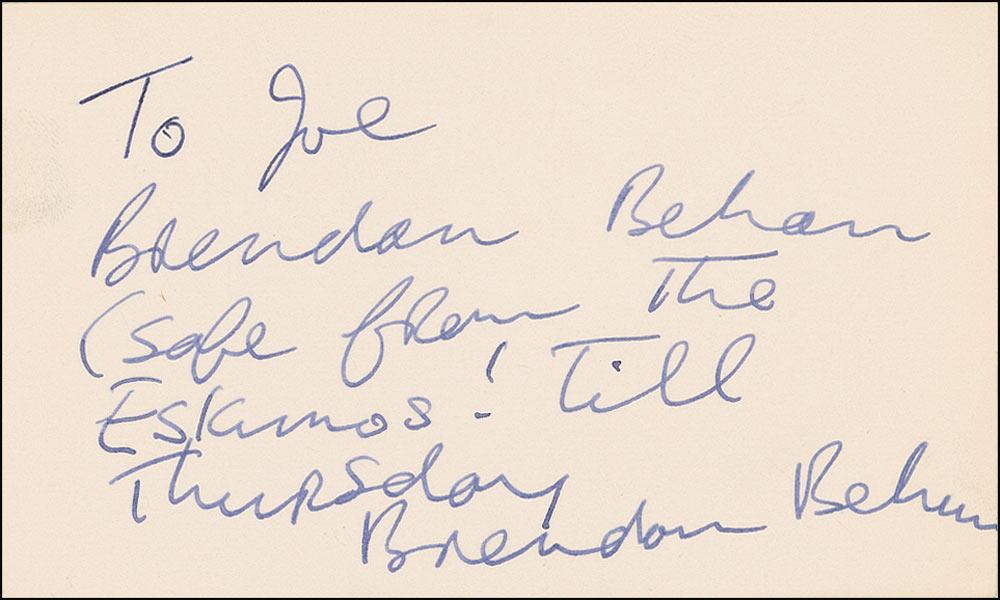 To Joe
Brendan Behan
(safe from The
Eskimos! Till
Thursday
Brendan Behan